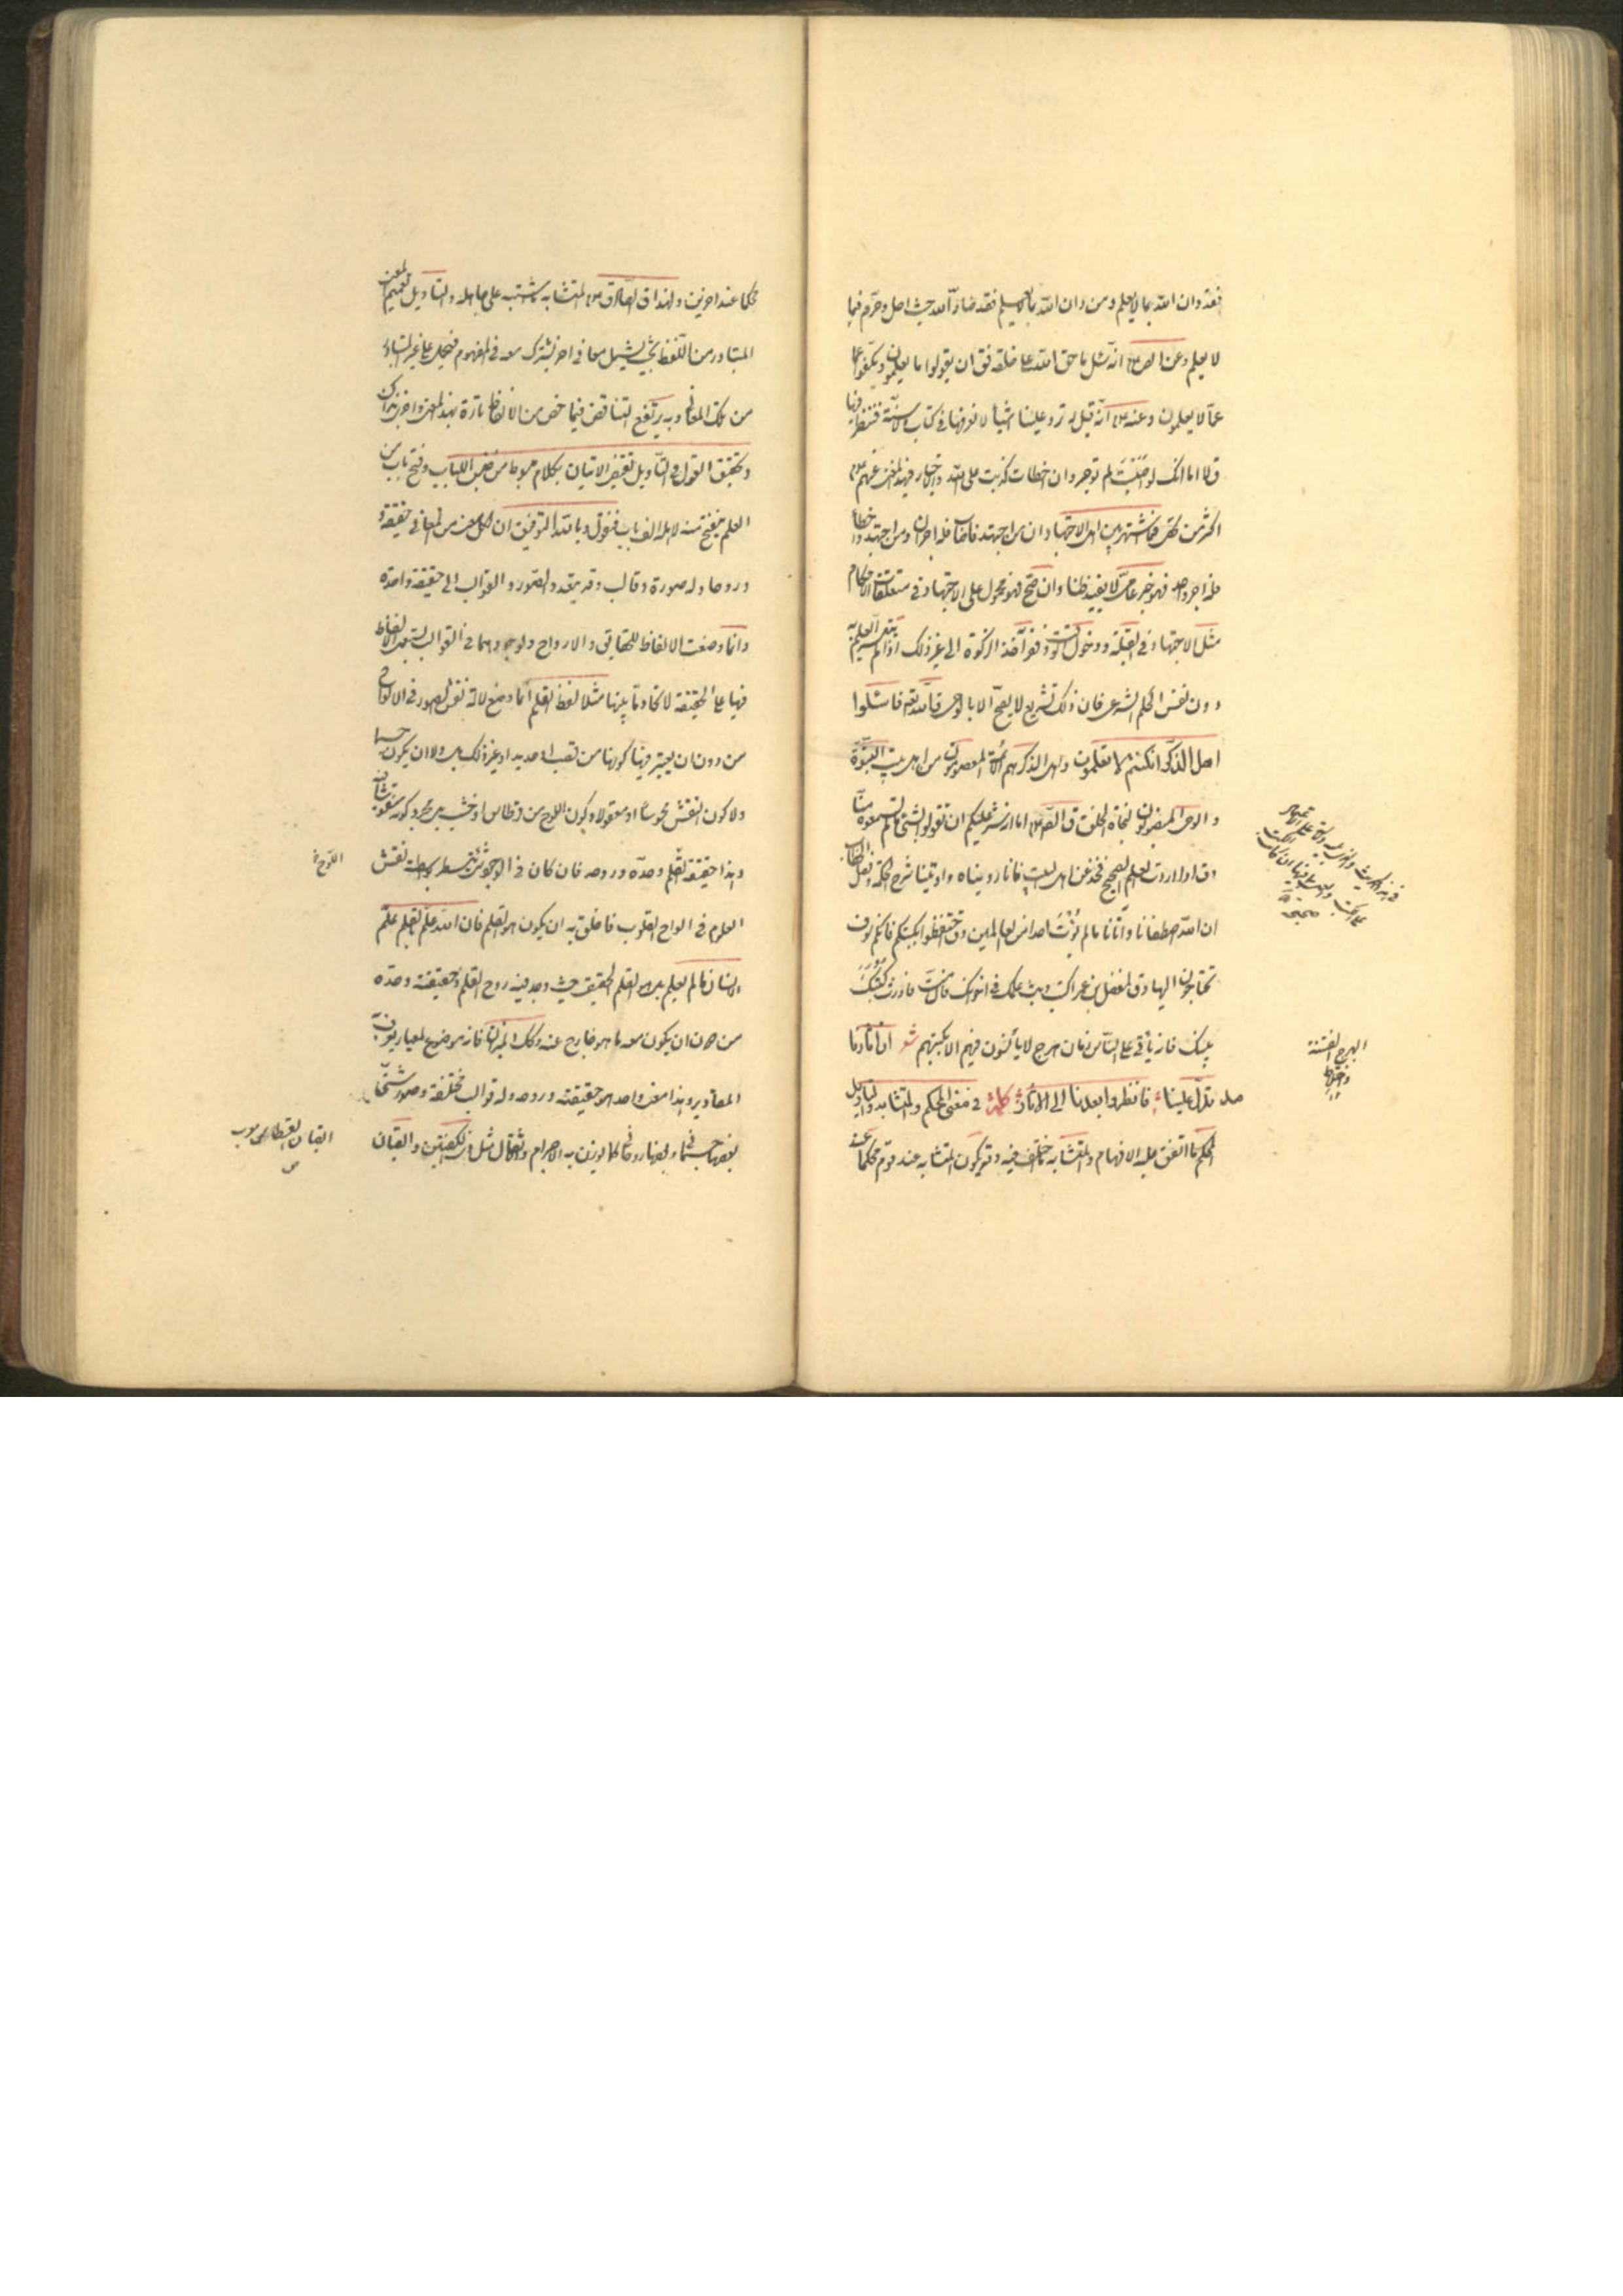 فقد دان الله بما لا يعلم ومن دان الله بما لا يعلم فقد ضادّ الله حيث احل وحرّم فيما
لا يعلم وعن الص؏ انه سئل ما حق الله على خلقه فق ان يقولوا ما يعلمون ويكفوا عما
عمّا لا يعلمون وعنه ؏ انّه قيل له ترد علينا اشيأ لا نعرفها في كتاب ولا سنة فننظر فيها
ق لا اما انك لو اصبت لم توجر وان اخطات كذبت على الله والاخبار في هذا المعنى عنهم ؏
اكثر من ان تحصى فما اشتهر بين اهل الاجتهاد ان من اجتهد فاصاب فله اجران ومن اجتهد واخطأ
فله اجر واحد فهو خبر عامّى لا يفيد ظنا وان صحّ فهو محمول على الاجتهاد في متعلقات الاحكام
مثل الاجتهاد في القبلة ودخول الوقت وفقر آخذ الزكوة الى غير ذلك اذا لم يتيسر العلم به
دون نفس الحكم الشرعى فان ذلك تشريع لا يصحّ الا بالوحى قال الله تعه فاسئلوا
اهل الذكر ان كنتم لا تعلمون واهل الذكر هم الائمّة المعصومون من اهل بيت النبوّة
و الوحى المنصوبون لنجاة الخلق ق الصّ؏ اما انه شر عليكم ان تقولوا بشئ ما لم تسمعوه منّا
وق اذا اردت العلم الصحيح فخذ عن اهل البيت فانا رويناه واوتينا شرح الحكمة وفصل الخطاب
ان الله اصطفانا واتانا ما لم يؤت احدا من العالمين وق احتفظوا بكتبكم فانكم سوف
تحتاجون اليها وق لمفضل بن عمر اكتب وبث علمك في اخوانك فان مت فاورث كتبك
بنيك فانه ياتى على النّاس زمان هرج لا يأنسون فيهم الا بكتبهم شعر ان اثارنا
تدلّ علينا فانظروا بعدنا الى الآثار كلمة في معنى المحكم والمتشابه والتاويل
المحكم ما اتفق عليه الافهام والمتشابه ما اختلف فيه وقد يكون المتشابه عند قوم محكما عند
الهرج الفتنة
والاختلاط
محكما عند اخرين ولهذا ق الصادق ؏ المتشابه ما اشتبه على جاهله والتاويل تعميم المعنى
المتبادر من اللفظ بحيث يشمل معاني اخر يشترك معه في المفهوم فيحمل على غير المتبادر
من تلك المعانى وبه يرتفع التناقض فيما خص من الالفاظ تارة بهذا المعنى واخرى بذاك
وتحقيق القول في التأويل يقتضى الاتيان بكلام مبسوط من جنس اللباب وفتح باب من
العلم ينفتح منه لاهله الف باب فنقول وبالله التوفيق ان لكل معنى من المعاني حقيقة و
وروحا وله صورة وقالب وقد يتعدد الصّور والقوالب الى حقيقة واحدة
وانما وضعت الالفاظ للحقايق والارواح ولوجودهما في القوالب يستعمل الالفاظ
فيها على الحقيقة لاتحاد ما بينها مثلا لفظ القلم انما وضع لالة نقش الصور في الالواح
من دون ان يعتبر فيها كونها من قصب او حديد او غير ذلك بل ولا ان يكون جسما
ولا كون النقش محسوسًا او معقولا ولا كون اللوح من قرطاس او خشب بل مجرد كونه منقوشا فيه
وهذا حقيقة القلم وحدّه وروحه فان كان في الوجود شئ يتسطر بواسطته نقش
اللوح خ
العلوم في الواح القلوب فاخلق به ان يكون هو القلم فان الله علّم بالقلم علّم
الانسان ما لم يعلم بل هو القلم الحقيقى حيث وجد فيه روح القلم وحقيقته وحدّه
من دون ان يكون معه ما هو خارج عنه وكذلك الميزان فانه موضوع لمعيار يعرف به
المقادير وهذا معنى واحد هو حقيقته وروحه وله قوالب مختلفة وصور شتّى
بعضها جسمانى وبعضها روحانى كما يوزن به الاجرام والاثقال مثل ذى الكفتين والقبان
القبان القسطاس معرب
ص